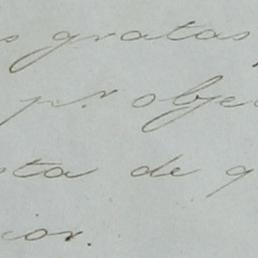 s gratas
pr obje
sta de q
cior.